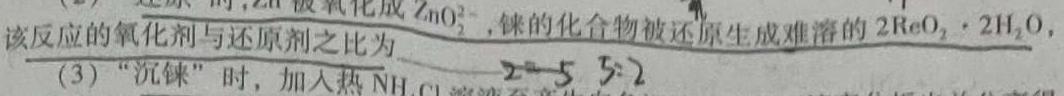 (2) "还原"时,Zn 被氧化成 ZnO₂²⁻,铼的化合物被还原生成难溶的 2ReO₂·2H₂O,
该反应的氧化剂与还原剂之比为
2=5 5:2
(3)"沉铼"时,加入热 NH₄Cl 溶液至产生白色